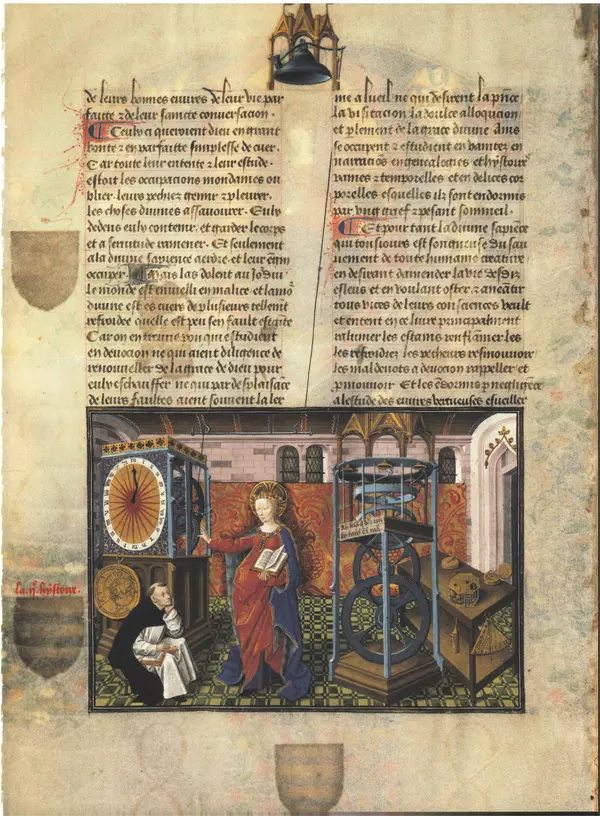 de leurs bonnes euures de leur vie par
faute ⁊ de leur saincte conuersacion .
Ceulx ci queroient dieu en grant
bonte ⁊ en parfaitte simplesse de cuer .
Car toute leur entente ⁊ leur estude .
estoit les occupacions mondaines ou
blier . leurs pechiez gemir ⁊ pleurer .
les choses diuines assauourer . Eulx
dedens eulx contenir . et garder le corps
et a seruitude ramener . Et seulement
a la diuine sapience aerdre . et leur entẽ
occuper . Mais las dolent au Jo
le monde est enuielli en malice . et lamo
diuine est es cuers de plusieurs tellemẽt
refroidee quelle est peu sen fault estaite
Car on en treuue pou qui estudient
en deuocion ne qui aient diligence de
renouueller de la grace de dieu pour
eulx eschauffer ne qui par desplaisãce
de leurs faultes aient souuent la ler
me a lueil ne qui desirent la
la visitacion la doulce allocucion
et plement de la grace diuine Ains
se occupent ⁊ estudient en
narracions en genealogies et hystoires
vaines ⁊ temporelles et en delices cor
porelles esquelles ilz sont endormis
par vng grief ⁊ pesant sommeil .
Et pour tant la diuine sapiẽce
qui tousiours est songneuse du sau
uement de toute humaine creature
en desirant damender la vie de
esleus et en voulant oster ⁊
tous vices de leurs consciences veult
et entent en ce liure principalment
ralumer les estains enflamer les
les refroidiez les pecheurs resmouuoir
les mal deuotz a deuocion rappeller et
pmouuoir . Et les ẽdormis p negligẽce
a lestude des euures vertueuses esueiller
la ij. hystoire .